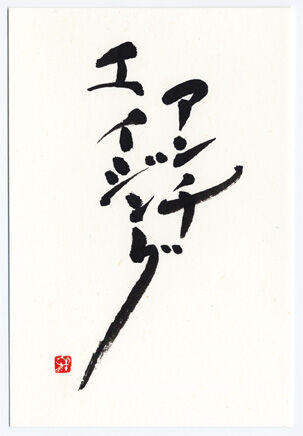 アンチ
エイジング